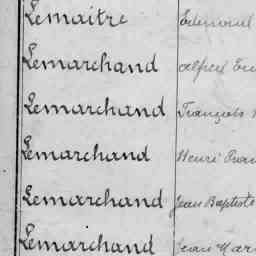 Lemaitre Edmond
Lemarchand Alfred
Lemarchand François
Lemarchand Henri
Lemarchand Jean Baptiste
Lemarchand Jean